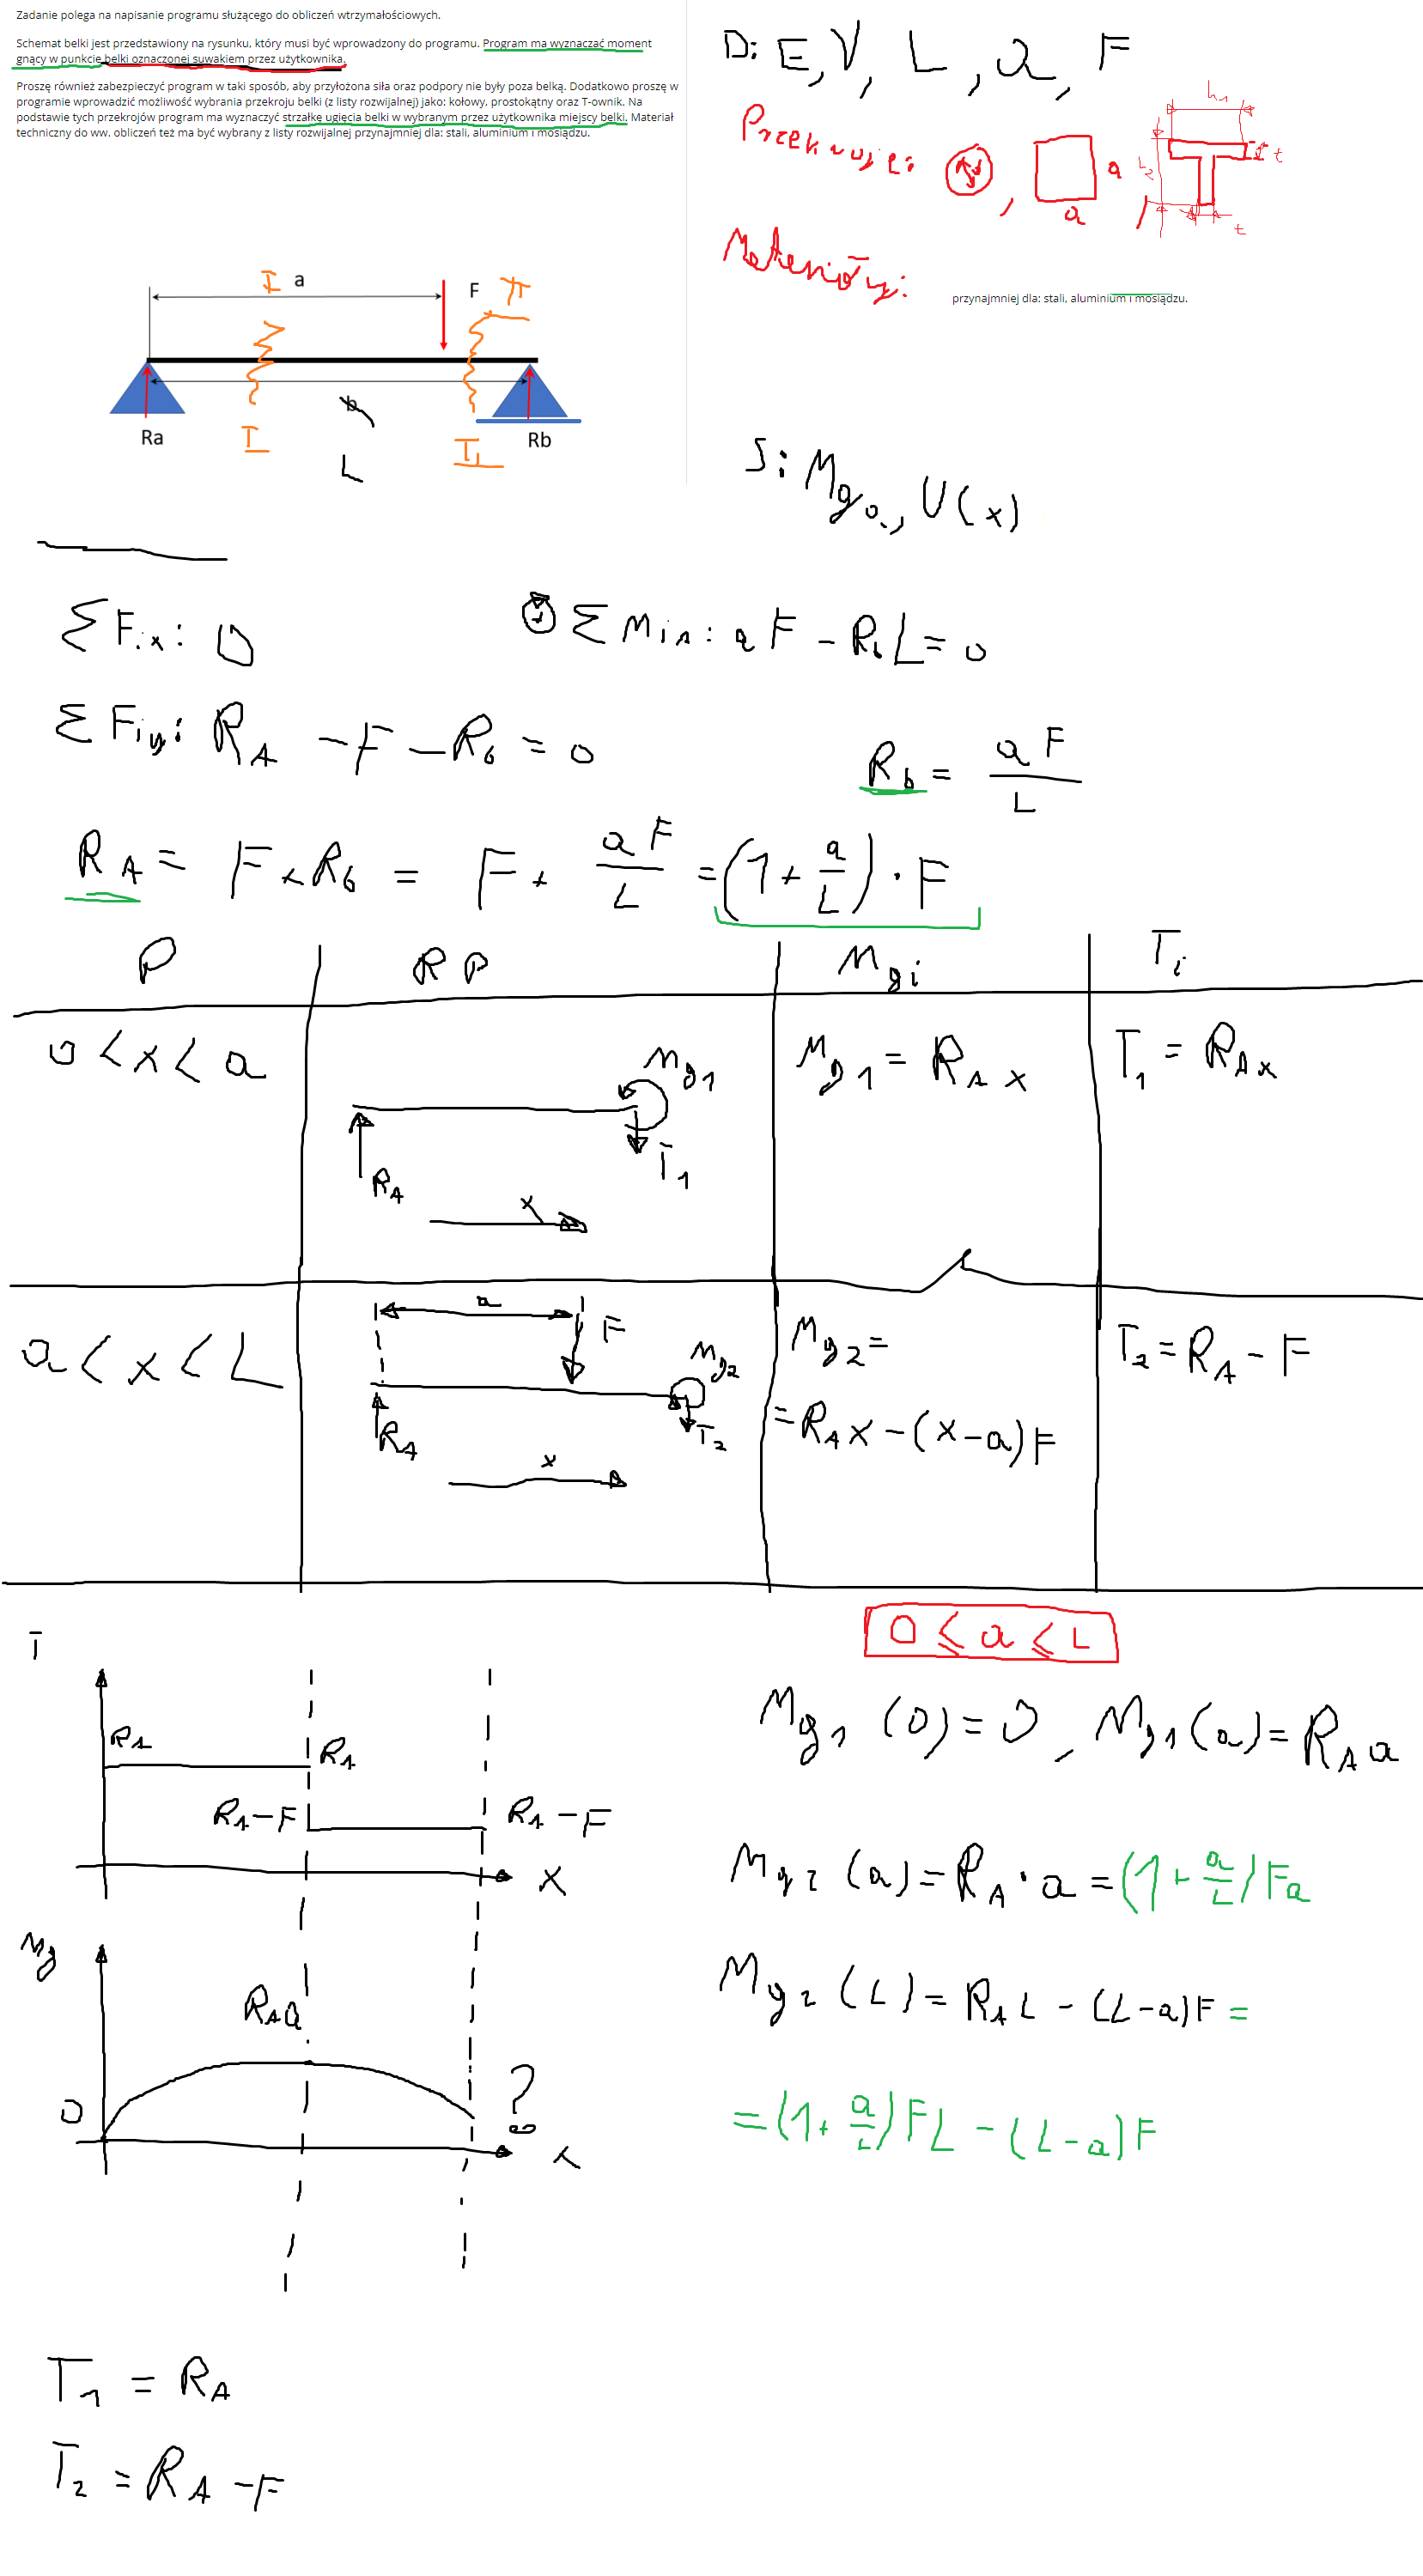 Zadanie polega na napisanie programu służącego do obliczeń wtrzymałościowych.
Schemat belki jest przedstawiony na rysunku, który musi być wprowadzony do programu. Program ma wyznaczać moment
gnący w punkcie belki oznaczonej suwakiem przez użytkownika.
Proszę również zabezpieczyć program w taki sposób, aby przyłożona siła oraz podpory nie były poza belką. Dodatkowo proszę w
programie wprowadzić możliwość wybrania przekroju belki (z listy rozwijalnej) jako: kołowy, prostokątny oraz T-ownik. Na
podstawie tych przekrojów program ma wyznaczyć strzałkę ugięcia belki w wybranym przez użytkownika miejscy belki. Materiał
techniczny do ww. obliczeń też ma być wybrany z listy rozwijalnej przynajmniej dla: stali, aluminium i mosiądzu.
D: E, V, L, a, F
Przekroje:
h1
h2
t
t
a
a
Materiały:
przynajmniej dla: stali, aluminium i mosiądzu.
I a F II
b
Ra I L II Rb
S: Mg, U(x)
ΣFix: 0
ΣMiA: aF - RbL = 0
ΣFiy: RA - F - Rb = 0
Rb = aF/L
RA = F + Rb = F + aF/L = (1 + a/L) · F
P RP Mgi Ti
0 < x < a
Mg1
RA
T1
x
Mg1 = RA x
T1 = RA x
a < x < L
a
F
Mg2
RA
T2
x
Mg2 =
= RA x - (x - a) F
T2 = RA - F
0 ≤ a ≤ L
T
RA
RA
RA - F
RA - F
x
Mg1 (0) = 0, Mg1 (a) = RA a
Mg2 (a) = RA · a = (1 + a/L) Fa
Mg
RA a
0
?
x
Mg2 (L) = RA L - (L - a) F =
= (1 + a/L) FL - (L - a) F
T1 = RA
T2 = RA - F